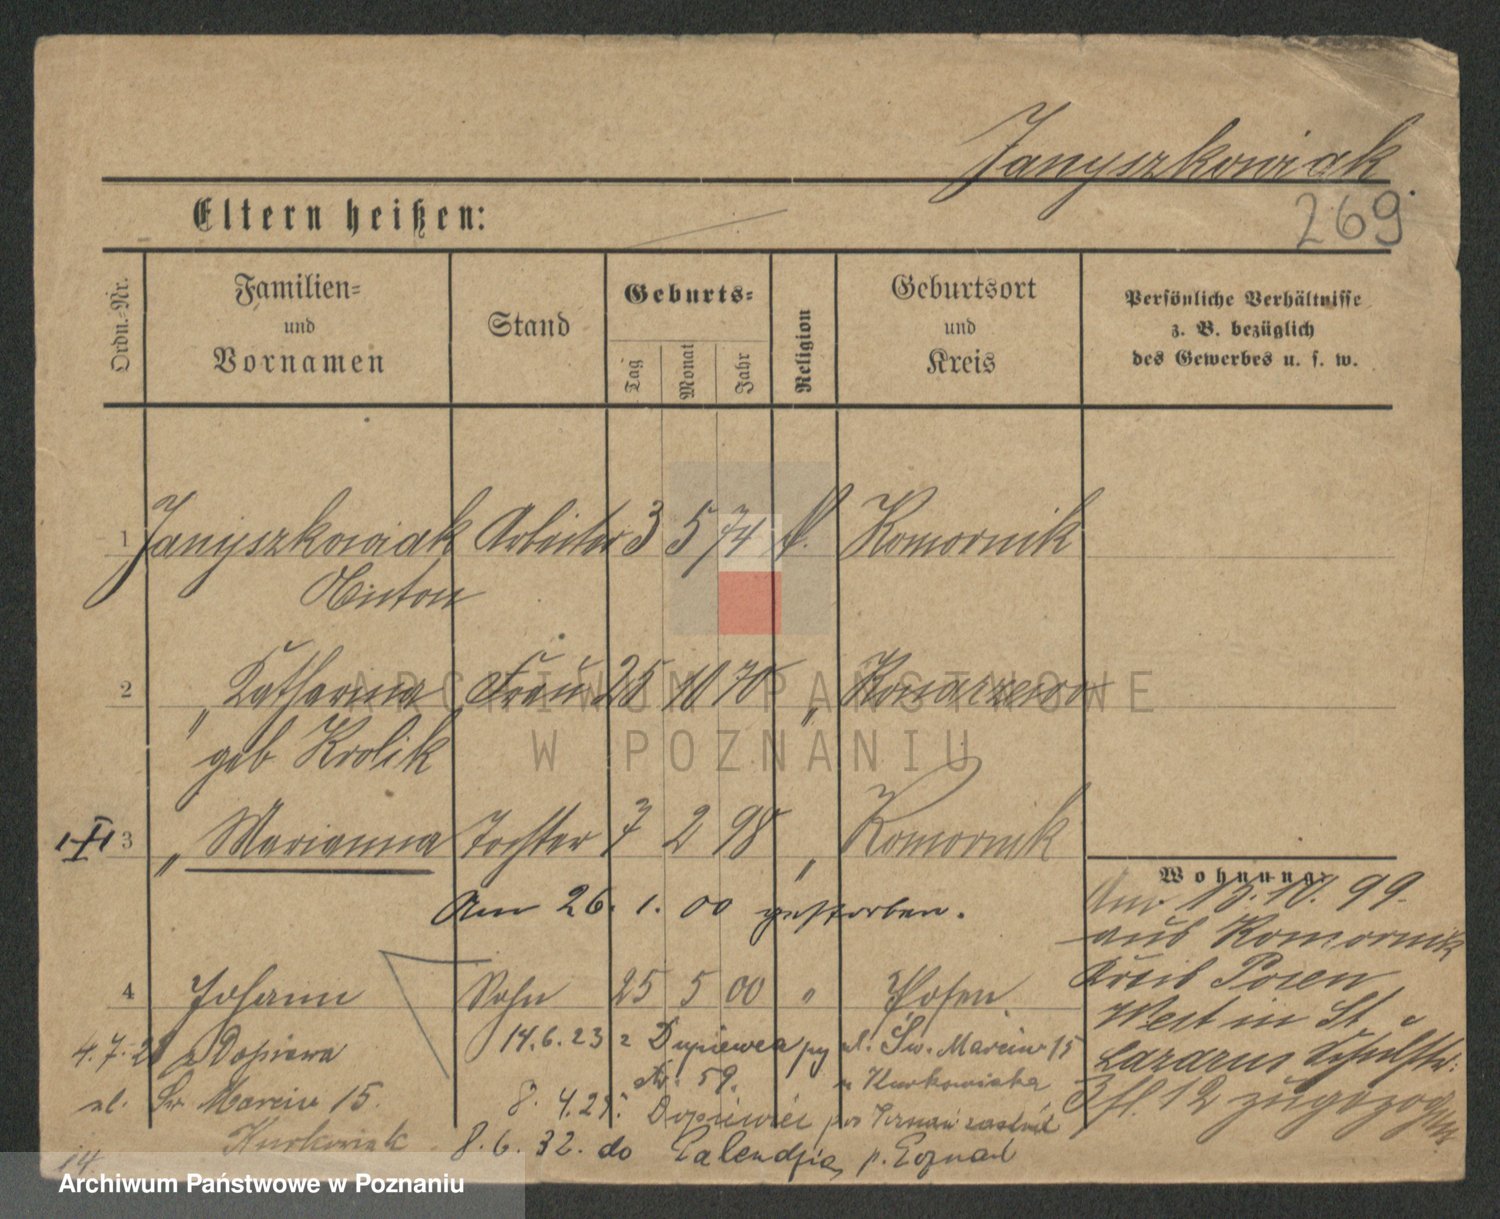 Janyszkowiak
269
Eltern heißen:
Ordn.-Nr.
Familien-
und
Vornamen
Stand
Geburts-
Tag
Monat
Jahr
Religion
Geburtsort
und
Kreis
Persönliche Verhältnisse
z. B. bezüglich
des Gewerbes u. s. w.
1 Janyszkowiak Arbeiter 3 5 74 Komornik
Anton
2 " Katharina Frau 25 10 70 " Konarzewo
geb Krolik
3 " Marianna Tochter 7 2 98 " Komornik
Am 26. 1. 00 gestorben.
Wohnung:
Am 13. 10. 99.
aus Komornik
Kreis Posen
West in St
Lazarus
12 zugezogen
4 Johann Sohn 25 5 00 " Posen
4. 7. z Dopiewa 14. 6. 23 z Dopiewca ul. Św. Marcin 15
Nr. 59. u Kurkowiaka
ul. Św. Marcin 15. 8. 4. Dopiewiec
Kurkowiak 8. 6. 32. do p. Poznań
14.
ARCHIWUM PAŃSTWOWE
W POZNANIU
Archiwum Państwowe w Poznaniu